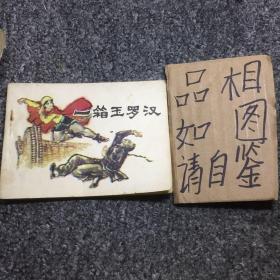 一箱玉罗汉
品相
如图
请自鉴